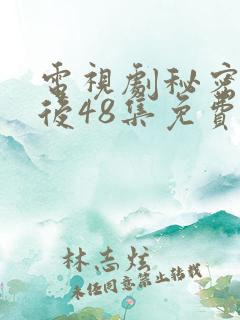 電視劇秘密
後48集免費
林志炫
未经同意禁止转载